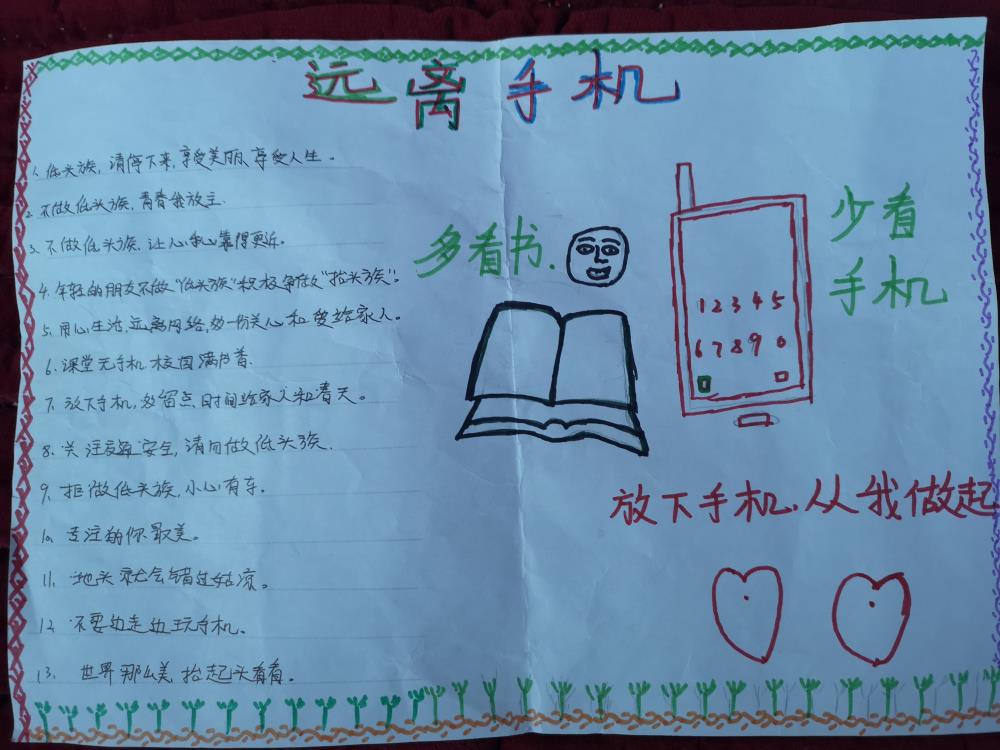 远离手机
1. 低头族，请停下来，享受美丽，享受人生。
2. 不做低头族，青春我放主.
3. 不做低头族，让心和心靠得更近。
4. 年轻的朋友不做"低头族"积极争做"抬头族"！
5. 用心生活，远离网络，多一份关心和爱给家人。
6. 课堂无手机 校园满书香.
7. 放下手机，多留点时间给家人和春天。
8. 关注交通安全，请勿做低头族.
9. 拒做低头族，小心有车.
10. 专注的你最美。
11. 地头就会错过姑凉。
12. 不要边走边玩手机。
13. 世界那么美 抬起头看看。
多看书.
少看
手机
1 2 3 4 5
6 7 8 9 0
放下手机.从我做起